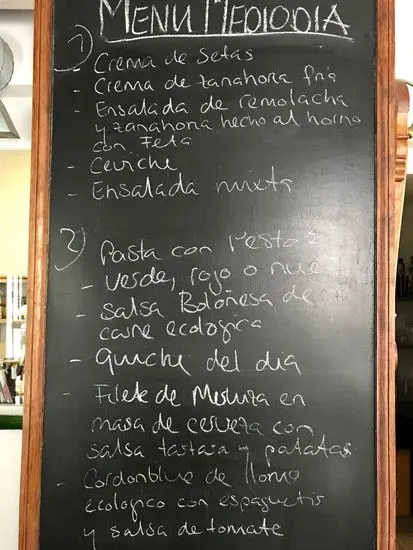 MENU MEDIODIA
1)
- Crema de Setas
- Crema de zanahoria fria
- Ensalada de remolacha
y zanahoria hecho al horno
con Feta
- Ceviche
- Ensalada mixta
2)
Pasta con Pesto:
- verde, rojo o
- salsa Boloñesa de
carne ecologica
- Quiche del dia
- Filete de Merluza en
masa de cerveza con
salsa tartara y patatas
- Cordonblue de lomo
ecologico con espaguetis
y salsa de tomate